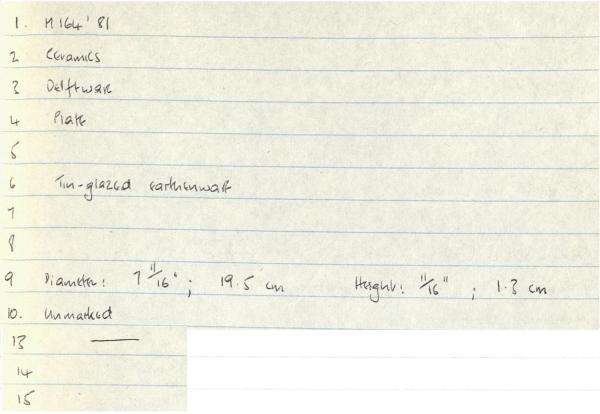 1. M164'81
2 Ceramics
3 Delftware
4 Plate
5
6 Tin-glazed earthenware
7
8
9 Diameter: 7 11/16"; 19.5 cm Height: 11/16"; 1.3 cm
10. Unmarked
13 —
14
15